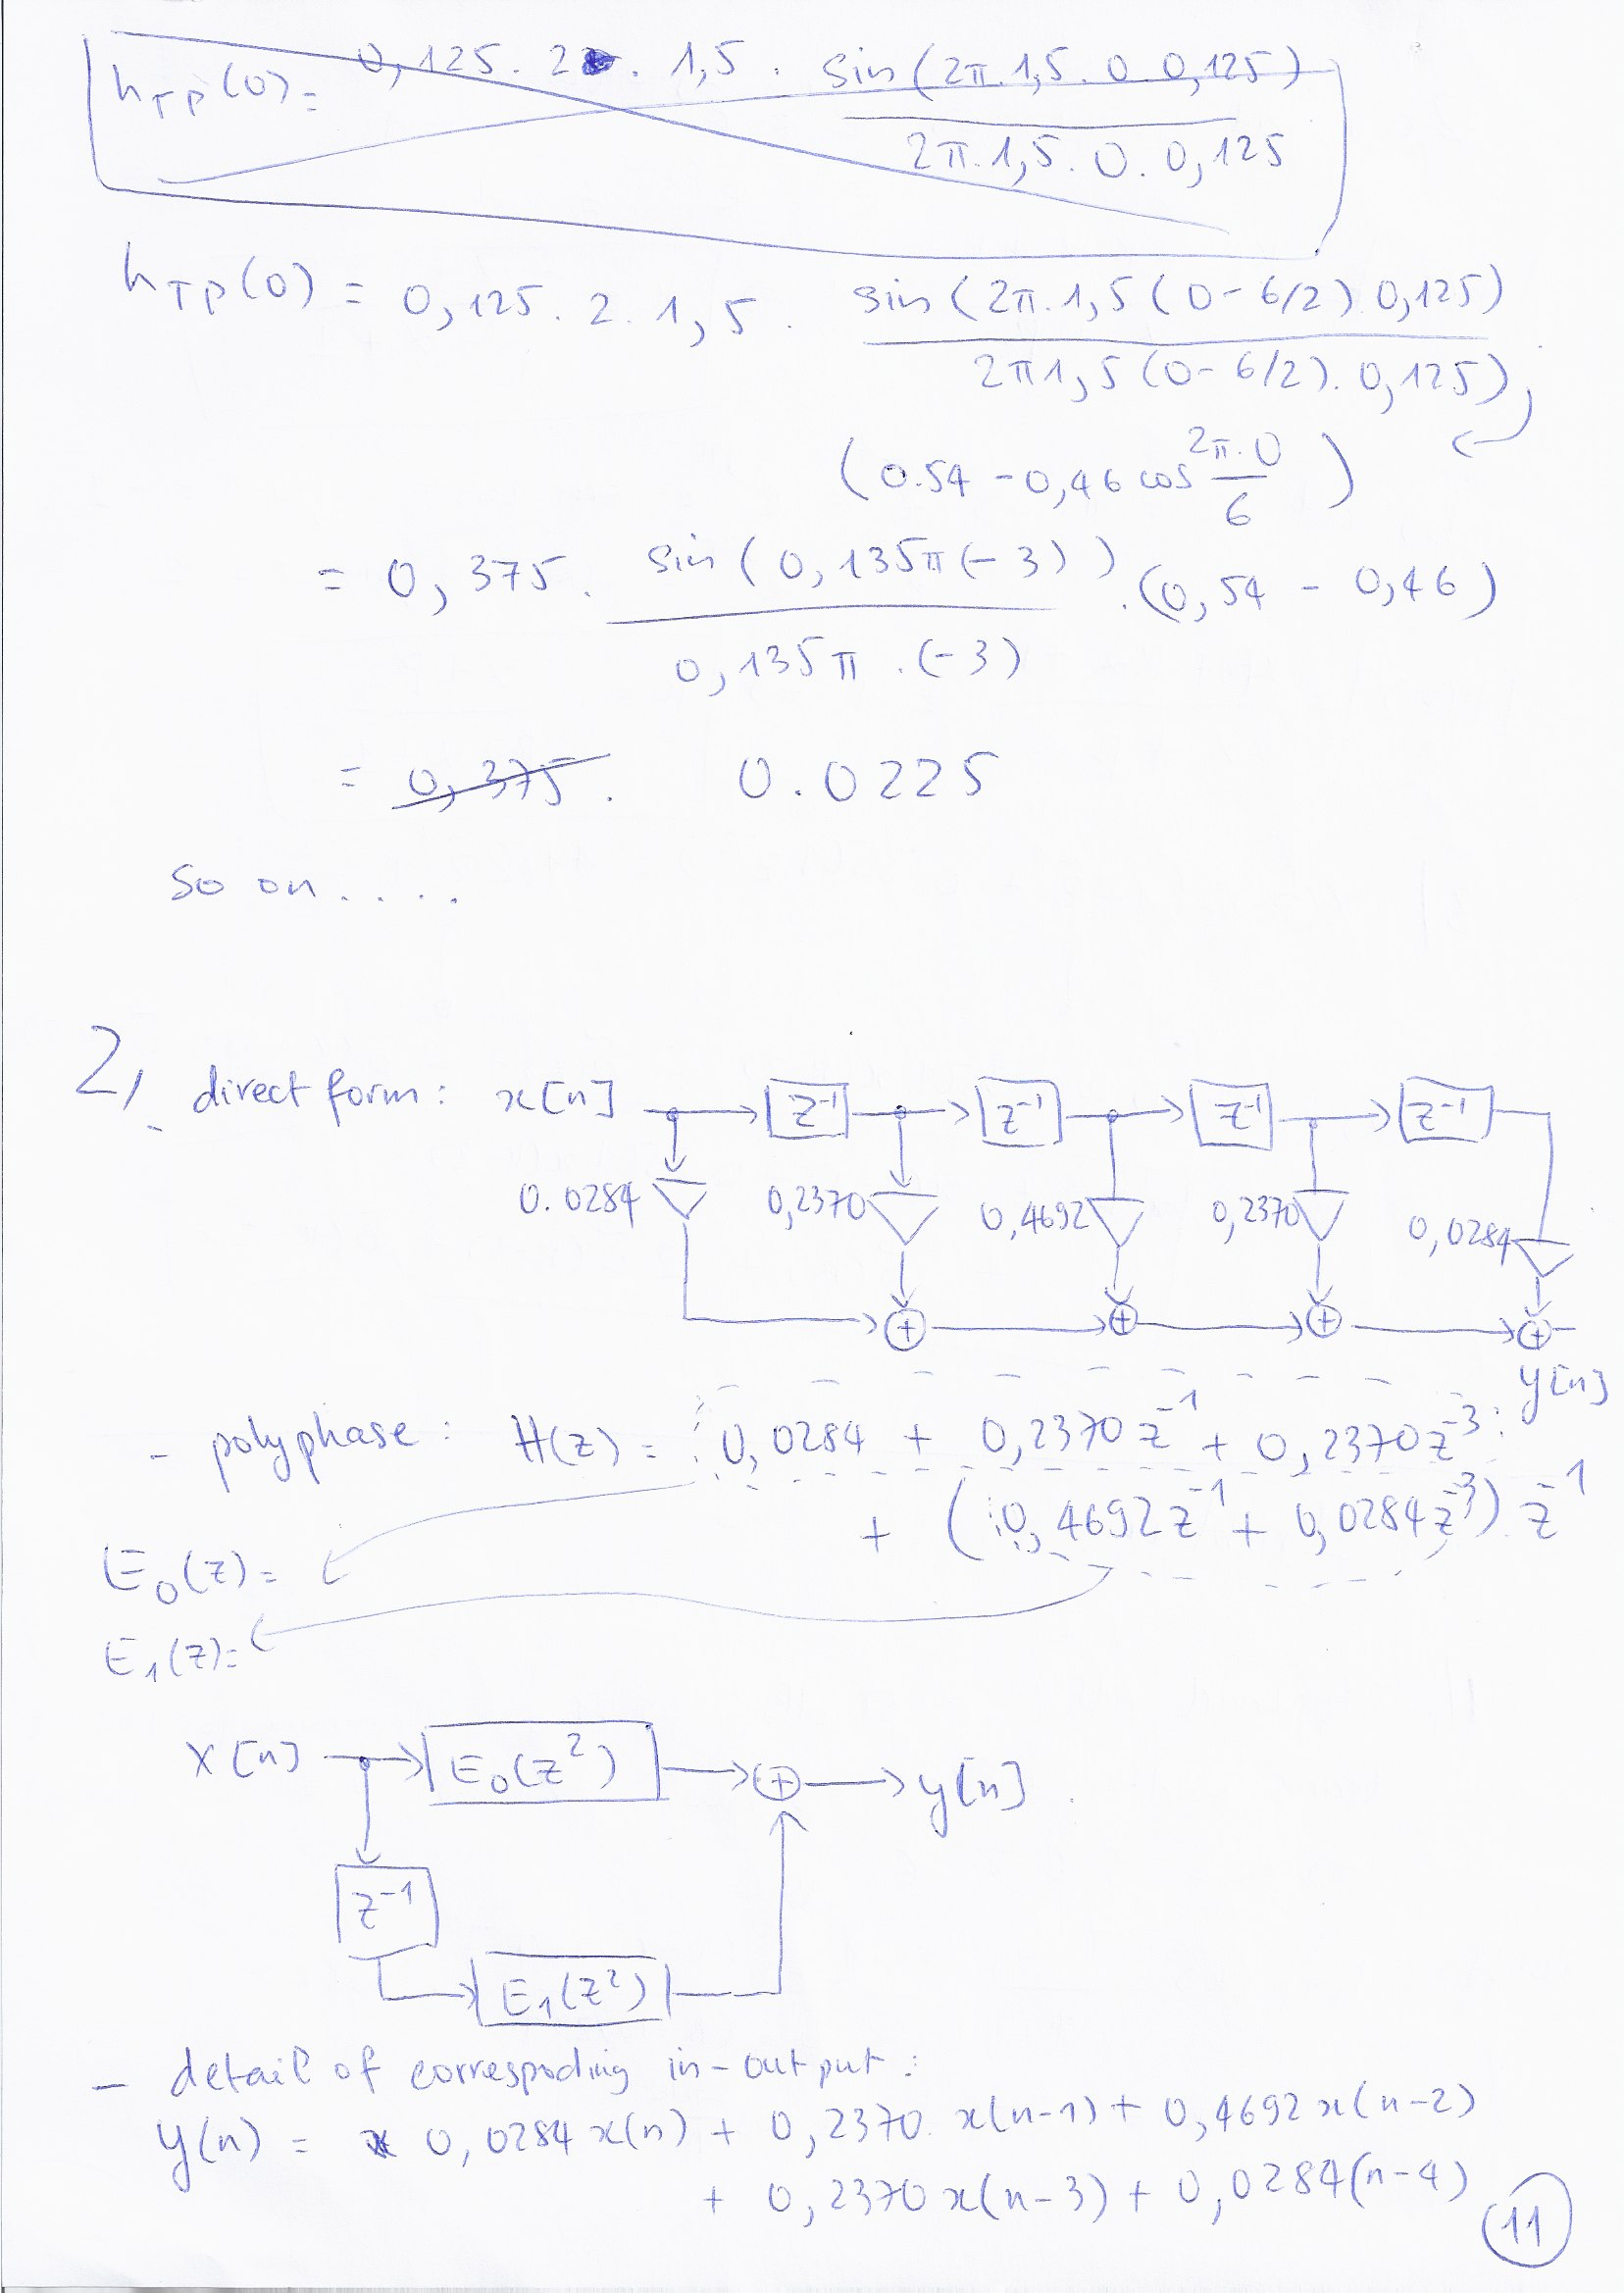 hTP(0) = 0,125 . 2 . 1,5 . sin(2π.1,5.0.0,125) / 2π.1,5.0.0,125
hTP(0) = 0,125 . 2 . 1,5 . sin(2π.1,5(0-6/2).0,125) / 2π1,5(0-6/2).0,125)
(0.54 - 0,46 cos 2π.0/6)
= 0,375 . sin(0,135π(-3)) / 0,135π.(-3) . (0,54 - 0,46)
= 0,375. 0.0225
so on.....
2, direct form: x[n] z⁻¹ z⁻¹ z⁻¹ z⁻¹
0.0284 0,2370 0,4692 0,2370 0,0284
+ + + +
y[n]
- polyphase: H(z) = 0,0284 + 0,2370z⁻¹ + 0,2370z⁻³
+ (0,4692z⁻¹ + 0,0284z⁻³) z⁻¹
E₀(z)=
E₁(z)=
x[n] E₀(z²) + y[n].
z⁻¹
E₁(z²)
- detail of correspoding in-output:
y(n) = 0,0284x(n) + 0,2370.x(n-1) + 0,4692x(n-2)
+ 0,2370x(n-3) + 0,0284(n-4)
11